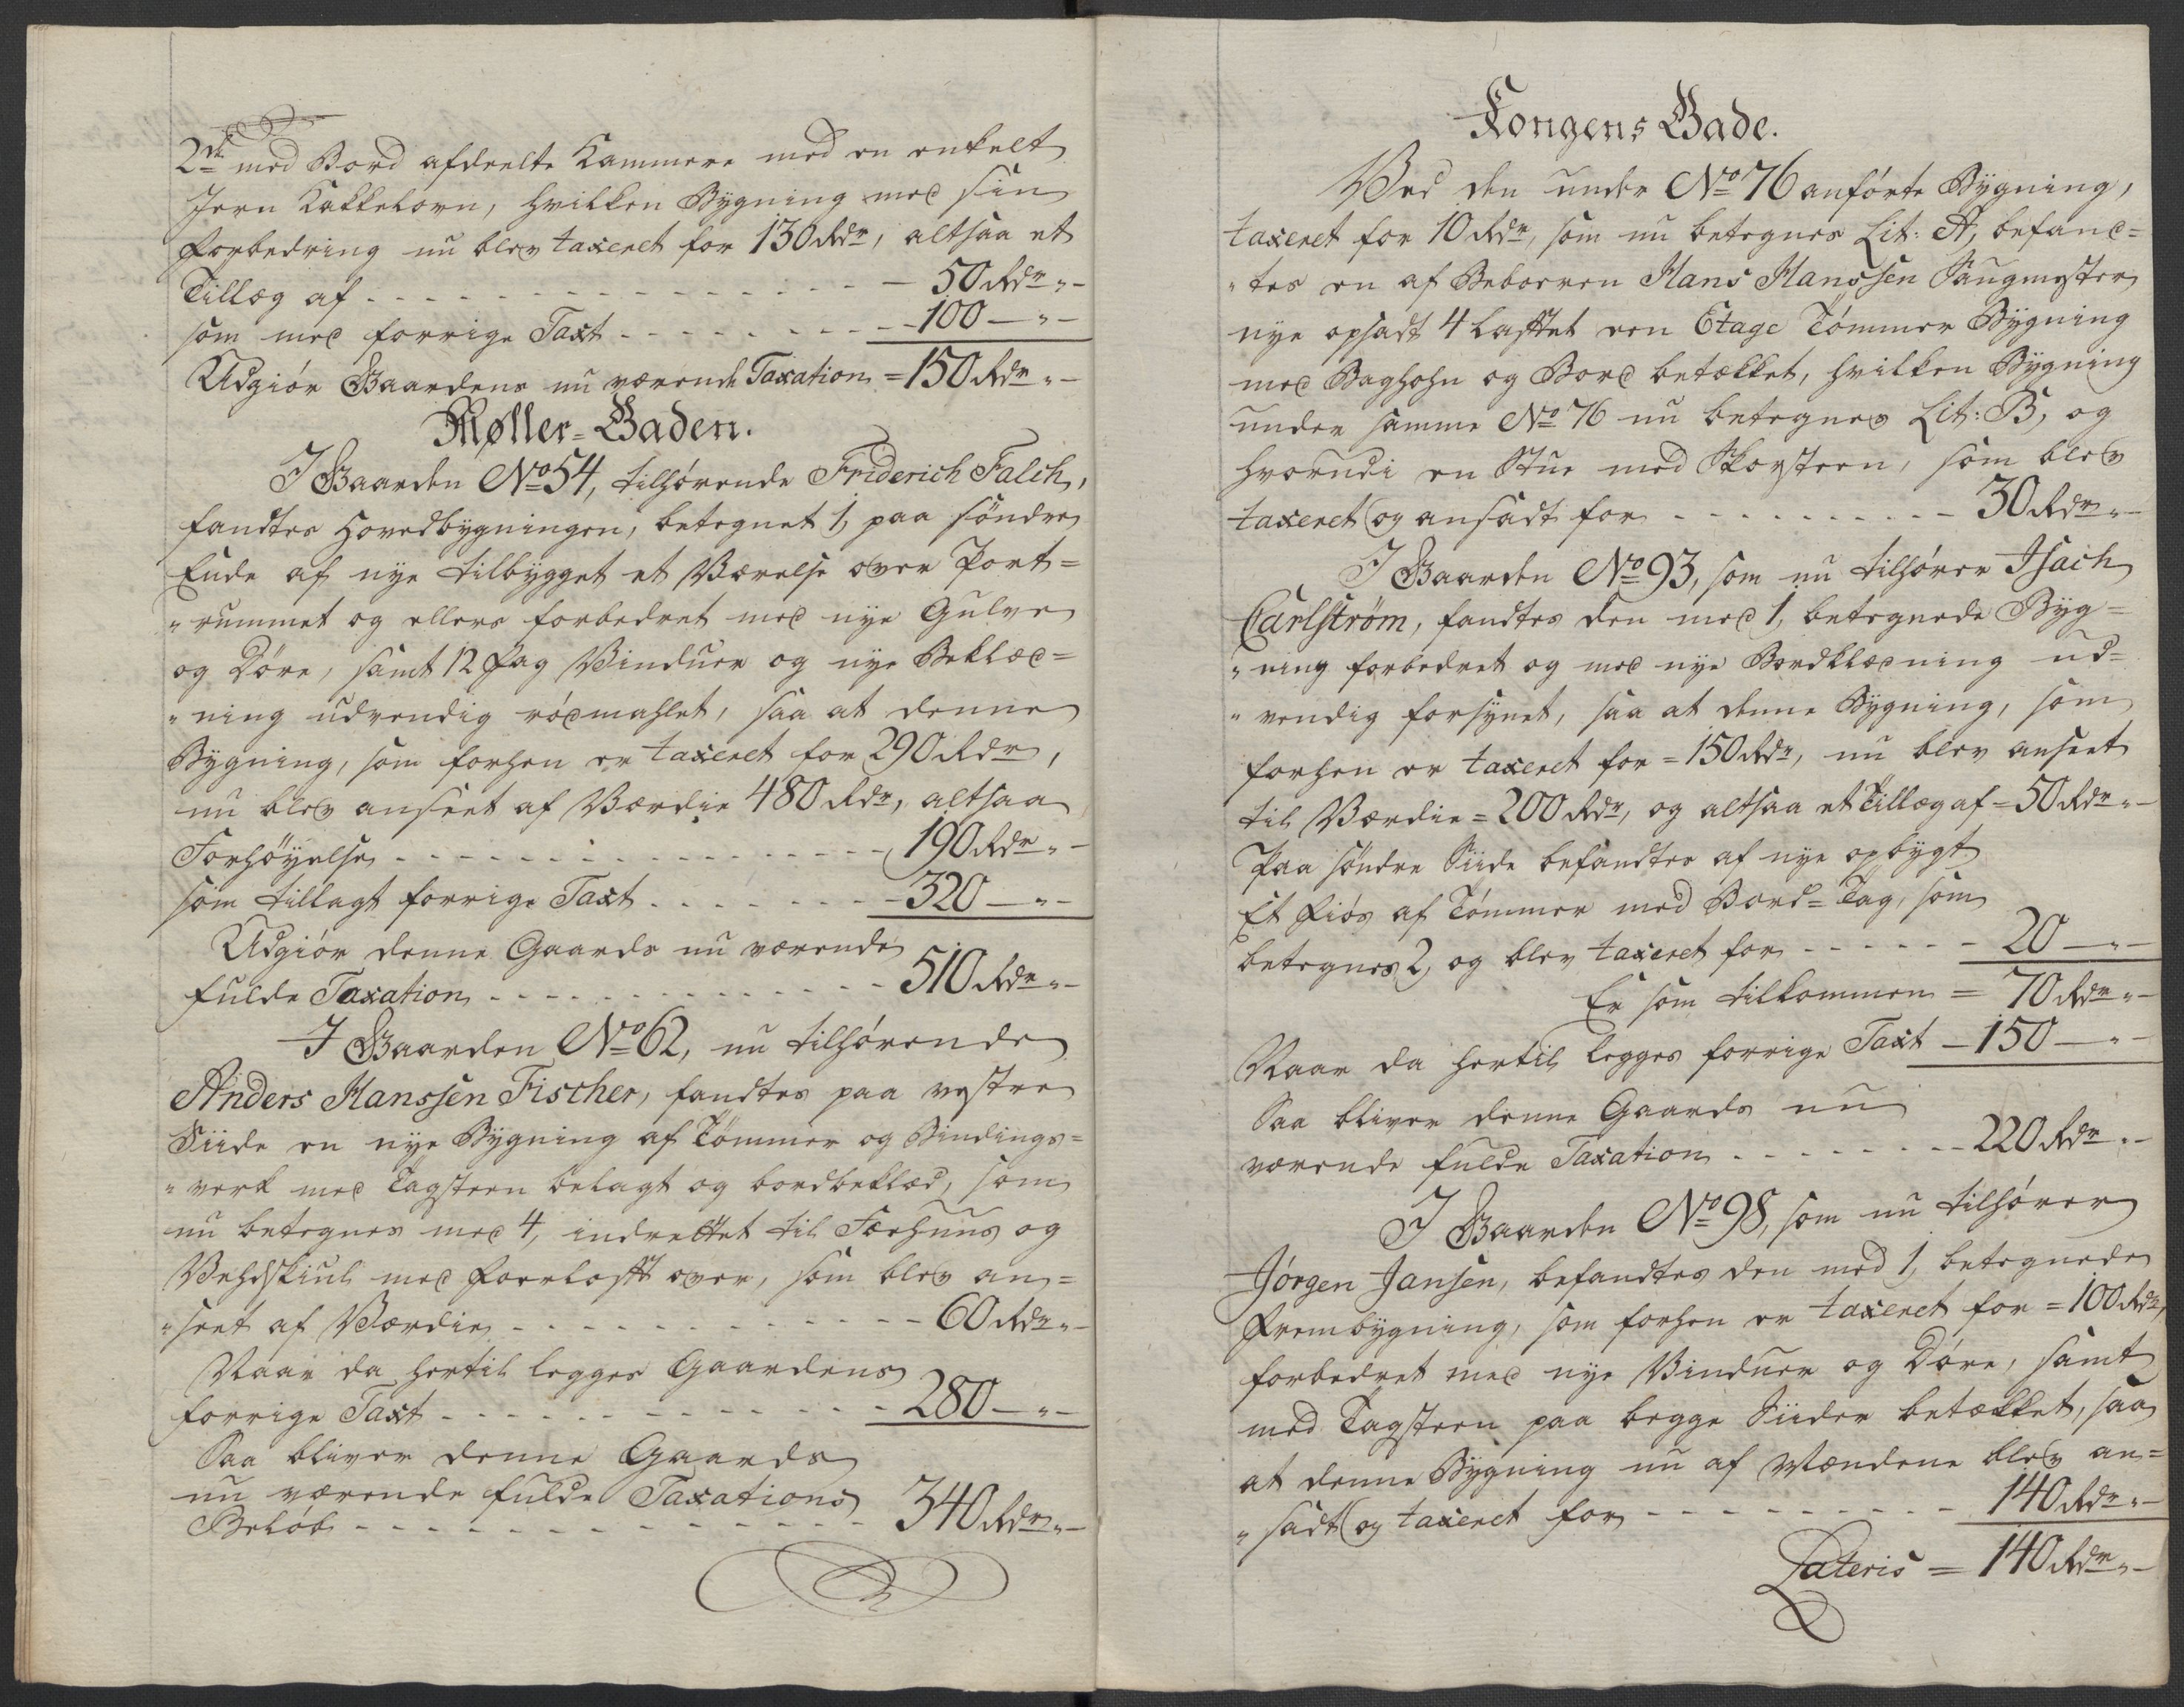 2de med Bord afdeelte Kammere med en enkelt
Jern Kakkelovn, hvilken Bÿgning med sin
forbedring nu blev taxeret for 130 Rdr, altsaa et
Tillæg af - - - - - - - - - - 50 Rdr „ -
som med forrige Taxt - - - - - - - - 100 — „ -
Udgiör Gaardens nu værende Taxation = 150 Rdr „ -
Møller-Gaden.
I Gaarden No 54, tilhørende Friderich Falch,
fandtes Hovedbÿgningen, betegnet 1, paa söndre
Ende af nÿe tilbÿgget et Værelse over Port=
„rummet og ellers forbedret med nÿe Gulve
og Döre, samt 12 Fag Vinduer og nÿe Beklæd=
„ning udvendig rödmahlet, saa at denne
Bÿgning, som forhen er taxeret for 290 Rdr,
nu blev anseet af Værdie 480 Rdr, altsaa
Forhöÿelse - - - - - - - - - - 190 Rdr „ -
som tillagt forrige Taxt - - - - - - - 320 — „ -
Udgiör denne Gaards nu værende
fulde Taxation - - - - - - - - - 510 Rdr „ -
I Gaarden No 62, nu tilhørende
Anders Hanssen Fischer, fandtes paa vestre
Siide en nÿe Bÿgning af Tömmer og Bindings=
„verk med Tagsteen belagt og bordbeklæd, som
nu betegnes med 4, indrettet til Fæehuus og
Vehdskiul med Foerlofft over, som blev an=
„seet af Værdie - - - - - - - - - 60 Rdr „ -
Naar da hertil legges Gaardens
forrige Taxt - - - - - - - - - - 280 — „ -
Saa bliver denne Gaards
nu værende fulde Taxations
Belöb - - - - - - - - - - - 340 Rdr „ -
Kongens Gade.
Ved den under No 76 anförte Bÿgning,
taxeret for 10 Rdr, som nu betegnes Lit: A, befand=
„tes en af Beboeren Hans Hanssen Saugmester
nÿe opsadt 4 lafftet een Etage Tömmer Bÿgning
med Baghohn og Bord betækket, hvilken Bÿgning
under samme No 76 nu betegnes Lit: B, og
hvorudi en Stue med Skorsteen, som blev
taxeret og ansadt for - - - - - - - - 30 Rdr „ -
I Gaarden No 93, som nu tilhører Isach
Carlström, fandtes den med 1, betegnede Bÿg=
„ning forbedret og med nÿe Bordklædning ud=
„vendig forsÿnet, saa at denne Bÿgning, som
forhen er taxeret for = 150 Rdr, nu blev anseet
til Værdie = 200 Rdr, og altsaa et Tillæg af = 50 Rdr „ -
Paa söndre Siide befandtes af nÿe opbÿgt
Et Fiös af Tömmer med Bord-Tag, som
betegnes 2, og blev taxeret for - - - - - - 20 — „ -
Er som tilkommen = 70 Rdr „ -
Naar da hertil legges forrige Taxt — 150 — „ -
Saa bliver denne Gaards nu
værende fulde Taxation - - - - - - - 220 Rdr „ -
I Gaarden No 98, som nu tilhører
Jörgen Jansen, befandtes den med 1, betegnede
Frembÿgning, som forhen er taxeret for = 100 Rdr,
forbedret med nÿe Vinduer og Döre, samt
med Tagsteen paa begge Siider betækket, saa
at denne Bÿgning nu af Mændene blev an=
„sadt og taxeret for - - - - - - - - 140 Rdr „ -
Lateris = 140 Rdr „ -